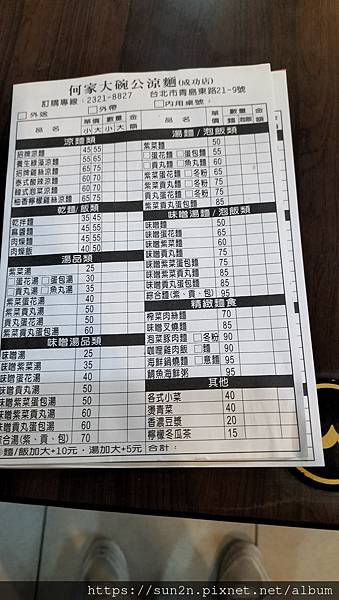 何家大碗公涼麵(成功店)
訂購專線：2321-8827 台北市青島東路21-9號
外送 外帶 內用桌號：
品名 單價 數量 金額
小 大 小 大
涼麵類
招牌涼麵 45 55
養生綠藻涼麵 50 60
招牌雞絲涼麵 65 75
泰式酸辣涼麵 60 70
韓式泡菜涼麵 60 70
柚香檸檬雞絲涼麵 65 75
乾麵/飯類
乾拌麵 35 45
麻醬麵 45 55
肉燥麵 45 55
肉燥飯 40 50
湯品類
紫菜湯 25
蛋花湯 蛋包湯 30
貢丸湯 魚丸湯 35
紫菜蛋花湯 40
紫菜貢丸湯 50
貢丸蛋花湯 50
紫菜貢丸蛋包湯 60
味噌湯品類
味噌湯 25
味噌紫菜湯 35
味噌蛋花湯 40
味噌貢丸湯 50
味噌紫菜蛋花湯 50
味噌紫菜貢丸湯 60
味噌貢丸蛋包湯 60
綜合湯(紫、貢、包) 70
麵/飯加大+10元，湯加大+5元 合計：
品名 單價 數量 金額
麵 泡飯
湯麵/泡飯類
紫菜麵 50
蛋花麵 蛋包麵 55
貢丸麵 魚丸麵 60
紫菜蛋花麵 冬粉 65
紫菜貢丸麵 冬粉 75
貢丸蛋花麵 冬粉 75
紫菜貢丸蛋包麵 85
味噌湯麵/泡飯類
味噌麵 50
味噌蛋花麵 65
味噌紫菜麵 60
味噌貢丸麵 75
味噌紫菜蛋包麵 75
味噌紫菜貢丸麵 85
味噌貢丸蛋包麵 85
綜合麵(紫、貢、包) 95
精緻麵食
榨菜肉絲麵 70
味噌叉燒麵 85
泡菜豚肉麵 冬粉 90
咖哩雞肉飯 麵 90
海鮮鍋燒麵 意麵 95
鯛魚海鮮粥 95
其他
各式小菜 40
燙青菜 40
香濃豆漿 20
檸檬冬瓜茶 15
https://sun2n.pixnet.net/album